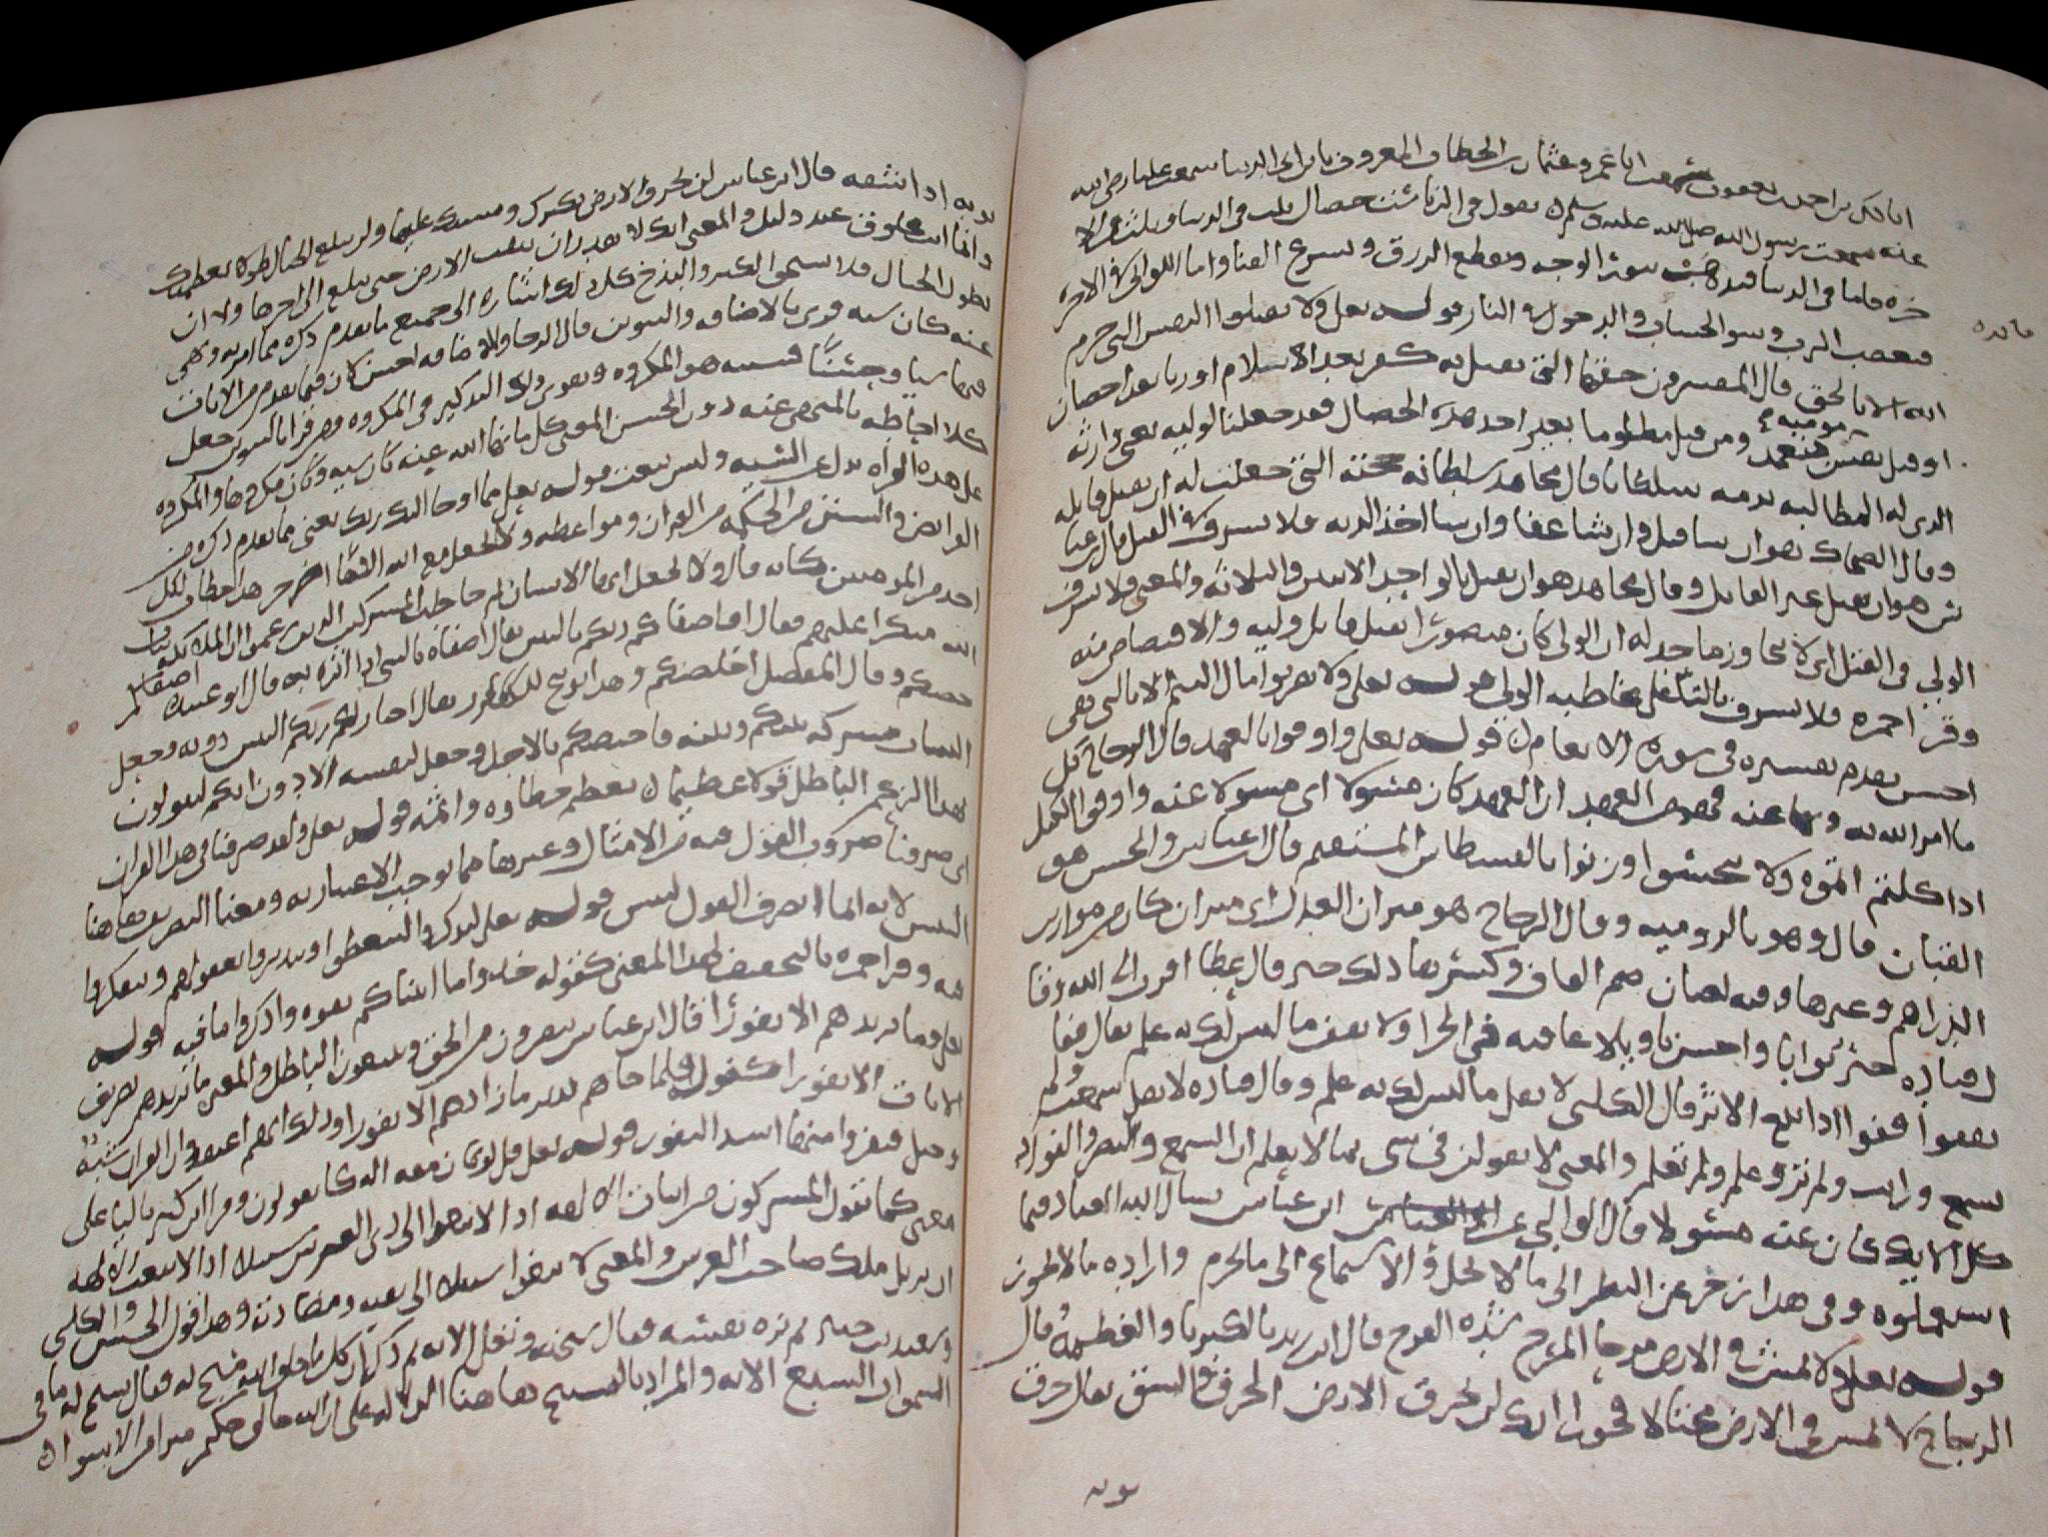 عنه سمعت رسول الله صلى الله عليه وسلم يقول في الزنا ست خصال ثلث في الدنيا وثلث في الا
خره فاما في الدنيا فيذهب بنور الوجه ويقطع الرزق ويسرع الفنا واما اللواتي في الاخره
فغضب الرب وسو الحساب والدخول في النار قوله تعلى ولا تقتلوا النفس التي حرم
مائده
الله الا بالحق قال المفسرون حقها التي تقتل به كفر بعد الاسلام او زنا بعد احصان
او قتل نفس بتعمد ومن قتل مظلوما بغير احد هذه الخصال فقد جعلنا لوليه يعني وارثه
مومنه
الذي له المطالبه بدمه سلطانا قال مجاهد سلطانه حجته التي جعلت له ان يقتل قاتله
وقال الضحاك هو ان شا قتل وان شا عفا وان شا اخذ الديه فلا يسرف في القتل قال ابن عبا
س هو ان يقتل غير القاتل وقال مجاهد هو ان يقتل بالواحد الاثنين والثلاثه والمعنى فلا يسرف
الولي في القتل اي لا يتجاوز ما حد له ان الولي كان منصورا بقتل قاتل وليه والاقتصاص منه
وقرا حمزه فلا تسرف بالتا مخاطبه الولي قوله تعلى ولا تقربوا مال اليتيم الا بالتي هي
احسن تقدم تفسيره في سوره الانعام قوله تعلى واوفوا بالعهد قال الزجاج كل
ما امر الله به ونها عنه فهو من العهد ان العهد كان مسولا اي مسولا عنه واوفوا الكيل
اذا كلتم اتموه ولا تبخسوا وزنوا بالقسطاس المستقيم قال ابن عباس والحسن هو
القبان قال وهو بالروميه وقال الزجاج هو ميزان العدل اي ميزان كان من موازين
الدراهم وغيرها وفيه لغتان ضم القاف وكسرها ذلك خير قال عطا اقرب الى الله وقتا
ل قتاده خير ثوابا واحسن تاويلا عاقبه في الجزا ولا تقف ما ليس لك به علم يقال قفا
يقفوا قفوا اذا اتبع الاثر قال الكلبي لا تقل ما ليس لك به علم وقال قتاده لا تقل سمعت ولم
تسمع ورايت ولم تر وعلمت ولم تعلم والمعنى لا تقولن في شي بما لا تعلم ان السمع والبصر والفواد
كل اولايك كان عنه مسولا قال الوالبي عن ابن عباس يسال الله العباد فيما
استعملوه وفي هذا زجر عن النظر الى ما لا يحل والاستماع الى ما يحرم واراده ما لا يجوز
قوله تعلى ولا تمش في الارض مرحا المرح شده الفرح قال ابن عباس يريد بالكبريا والعظمه قال
الزجاج لا تمش في الارض مختالا فخورا انك لن تخرق الارض الخرق الشق يقال خرق
ثوبه اذا شقه قال ابن عباس لن تخرق الارض بكبرك ومشيك عليها ولن تبلغ الجبال طولا بعظمتك
وانما انت مخلوق عبد ذليل والمعنى انك لا تقدر ان تنقب الارض حتى تبلغ الى اخرها ولا ان
تطول الجبال فلا تستحق الكبر والبذخ كل ذلك اشاره الى جميع ما تقدم ذكره مما امر به ونهي
عنه كان سيه قري بالاضافه والتنوين قال الزجاج والاضافه احسن لان فيما تقدم من الايات
سيا وحسنا فسيه هو المكروه ويقوي ذلك التذكير في المكروه ومن قرا بالتنوين جعل
كلا احاطه بالمنهي عنه دون الحسن المعنى كل ما نها الله عنه كان سيه وكان مكروها والمكروه
على هذه القراه بدل من السيه وليس بنعت قوله تعلى مما اوحا اليك ربك يعني مما تقدم ذكره من
الفرايض والسنن من الحكمه من القران ومواعظه ولا تجعل مع الله الها اخر هذا خطاب لكل
احد من المومنين كانه قال ولا تجعل ايها الانسان ثم خاطب المشركين الذين زعموا ان الملايكه بنات
الله منكرا عليهم فقال افاصفاكم ربكم بالبنين يقال اصفاه بالشي اذا اثره به قال ابو عبيده اصفاكم
خصكم وقال المفضل اخلصكم وهذا توبيخ للكفار يقول اختار لكم ربكم البنين دونه وجعل
البنات مشتركه بينكم وبينه فاختصكم بالاجل وجعل لنفسه الادون انكم لتقولون
بهذا الزعم الباطل قولا عظيما يعظم خطاوه واثمه قوله تعلى ولقد صرفنا في هذا القران
اي صرفنا ضروب القول فيه من الامثال وغيرها مما يوجب الاعتبار به ومعنا التصريف هاهنا
التبيين لانه انما يصرف القول ليبين قوله تعلى ليذكروا ليتعظوا ويتدبروا بعقولهم ويتفكروا
فيه وقرا حمزه بالتخفيف لهذا المعنى كقوله خذوا ما اتيناكم بقوه واذكروا ما فيه قوله
تعلى وما يزيدهم الا نفورا قال ابن عباس ينفرون من الحق ويتبعون الباطل والمعنى ما يزيدهم تصريف
الايات الا نفورا كقوله فلما جاهم نذير ما زادهم الا نفورا وذلك انهم اعتقدوا ان القران شبه
وحيل فنفروا منها اشد النفور قوله تعلى قل لو كان معه الهه كما يقولون وقرا ابن كثير باليا على
معنى كما يقول المشركون من اثبات الالهه اذا لابتغوا الى ذي العرش سبيلا اذا لابتغت الالهه
ان تزيل ملك صاحب العرش والمعنى لابتغوا سبيلا الى مغالبته ومضادته وهذا قول الحسن والكلبي
وسعيد بن جبير ثم نزه نفسه فقال سبحنه وتعلى الايه ثم ذكر ان كل شي يسبح له فقال تسبح له
السموات السبع الايه والمراد بالتسبيح هاهنا الدلاله على ان الله خالق حكيم مبرا من الاسوا